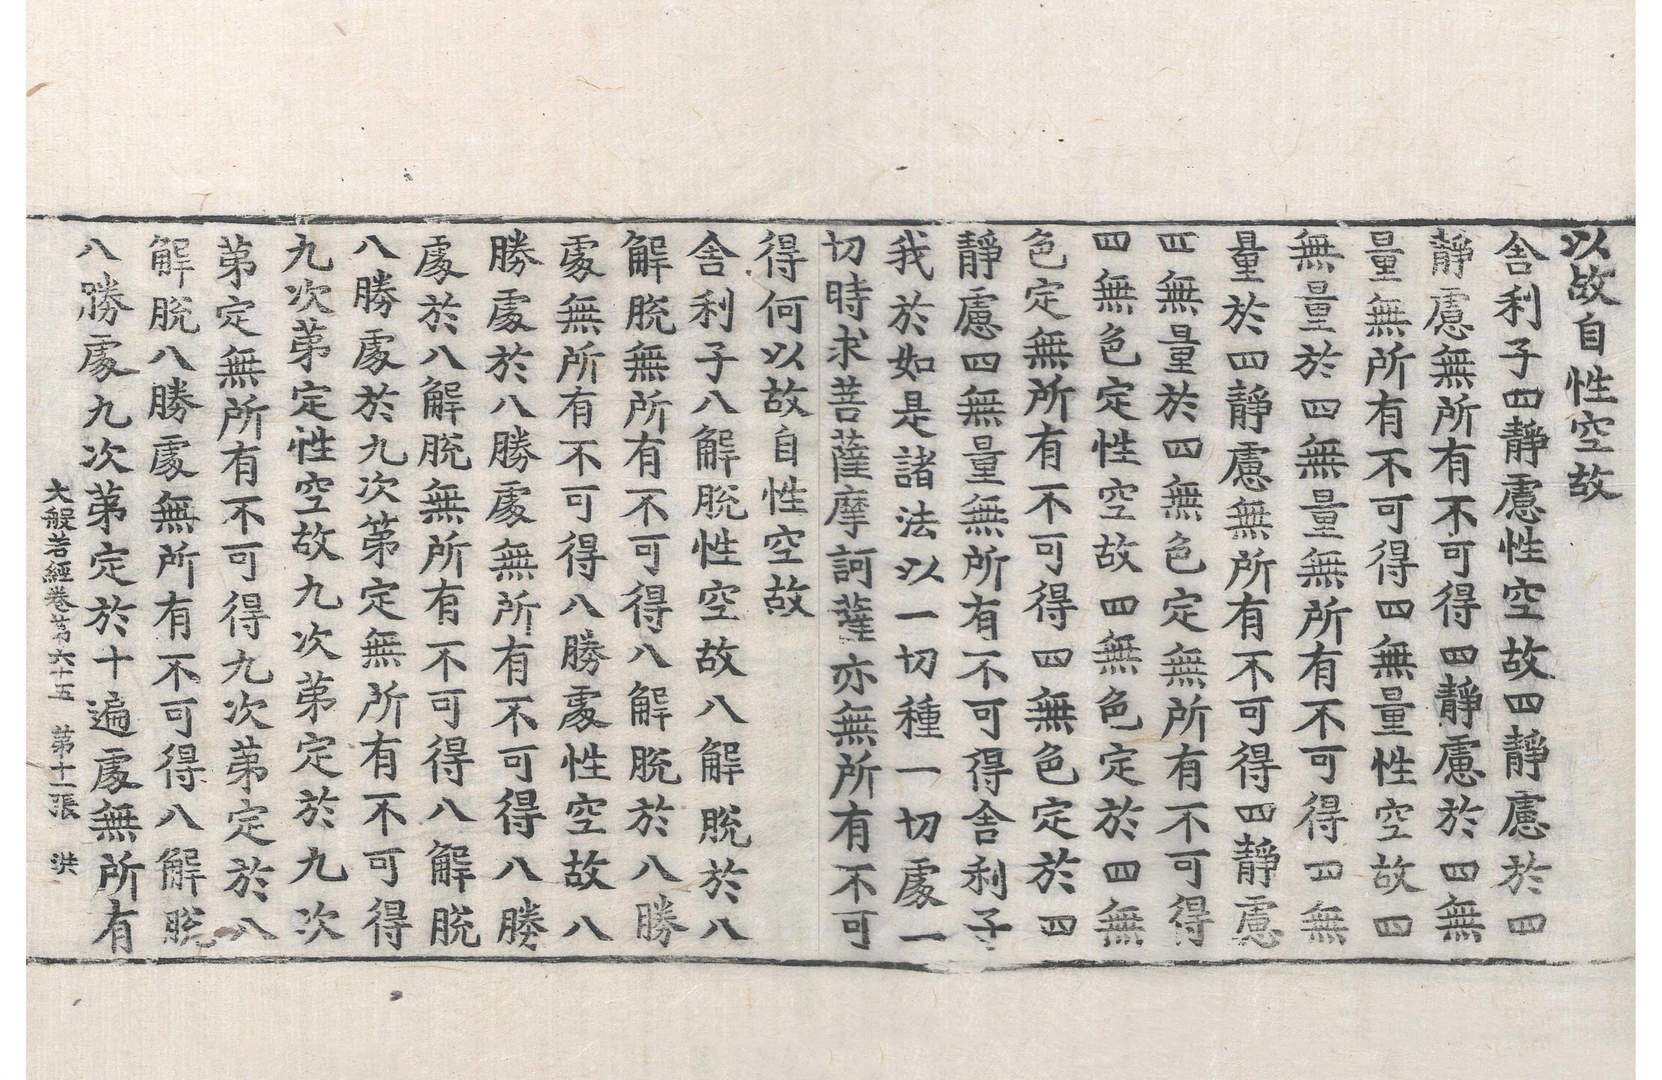 以故自性空故
舍利子四靜慮性空故四靜慮於四
靜慮無所有不可得四靜慮於四無
量無所有不可得四無量性空故四
無量於四無量無所有不可得四無
量於四靜慮無所有不可得四靜慮
四無量於四無色定無所有不可得
四無色定性空故四無色定於四無
色定無所有不可得四無色定於四
靜慮四無量無所有不可得舍利子
我於如是諸法以一切種一切處一
切時求菩薩摩訶薩亦無所有不可
得何以故自性空故
舍利子八解脫性空故八解脫於八
解脫無所有不可得八解脫於八勝
處無所有不可得八勝處性空故八
勝處於八勝處無所有不可得八勝
處於八解脫無所有不可得八解脫
八勝處於九次第定無所有不可得
九次第定性空故九次第定於九次
第定無所有不可得九次第定於八
解脫八勝處無所有不可得八解脫
八勝處九次第定於十遍處無所有
大般若經卷第六十五 第十一張 洪